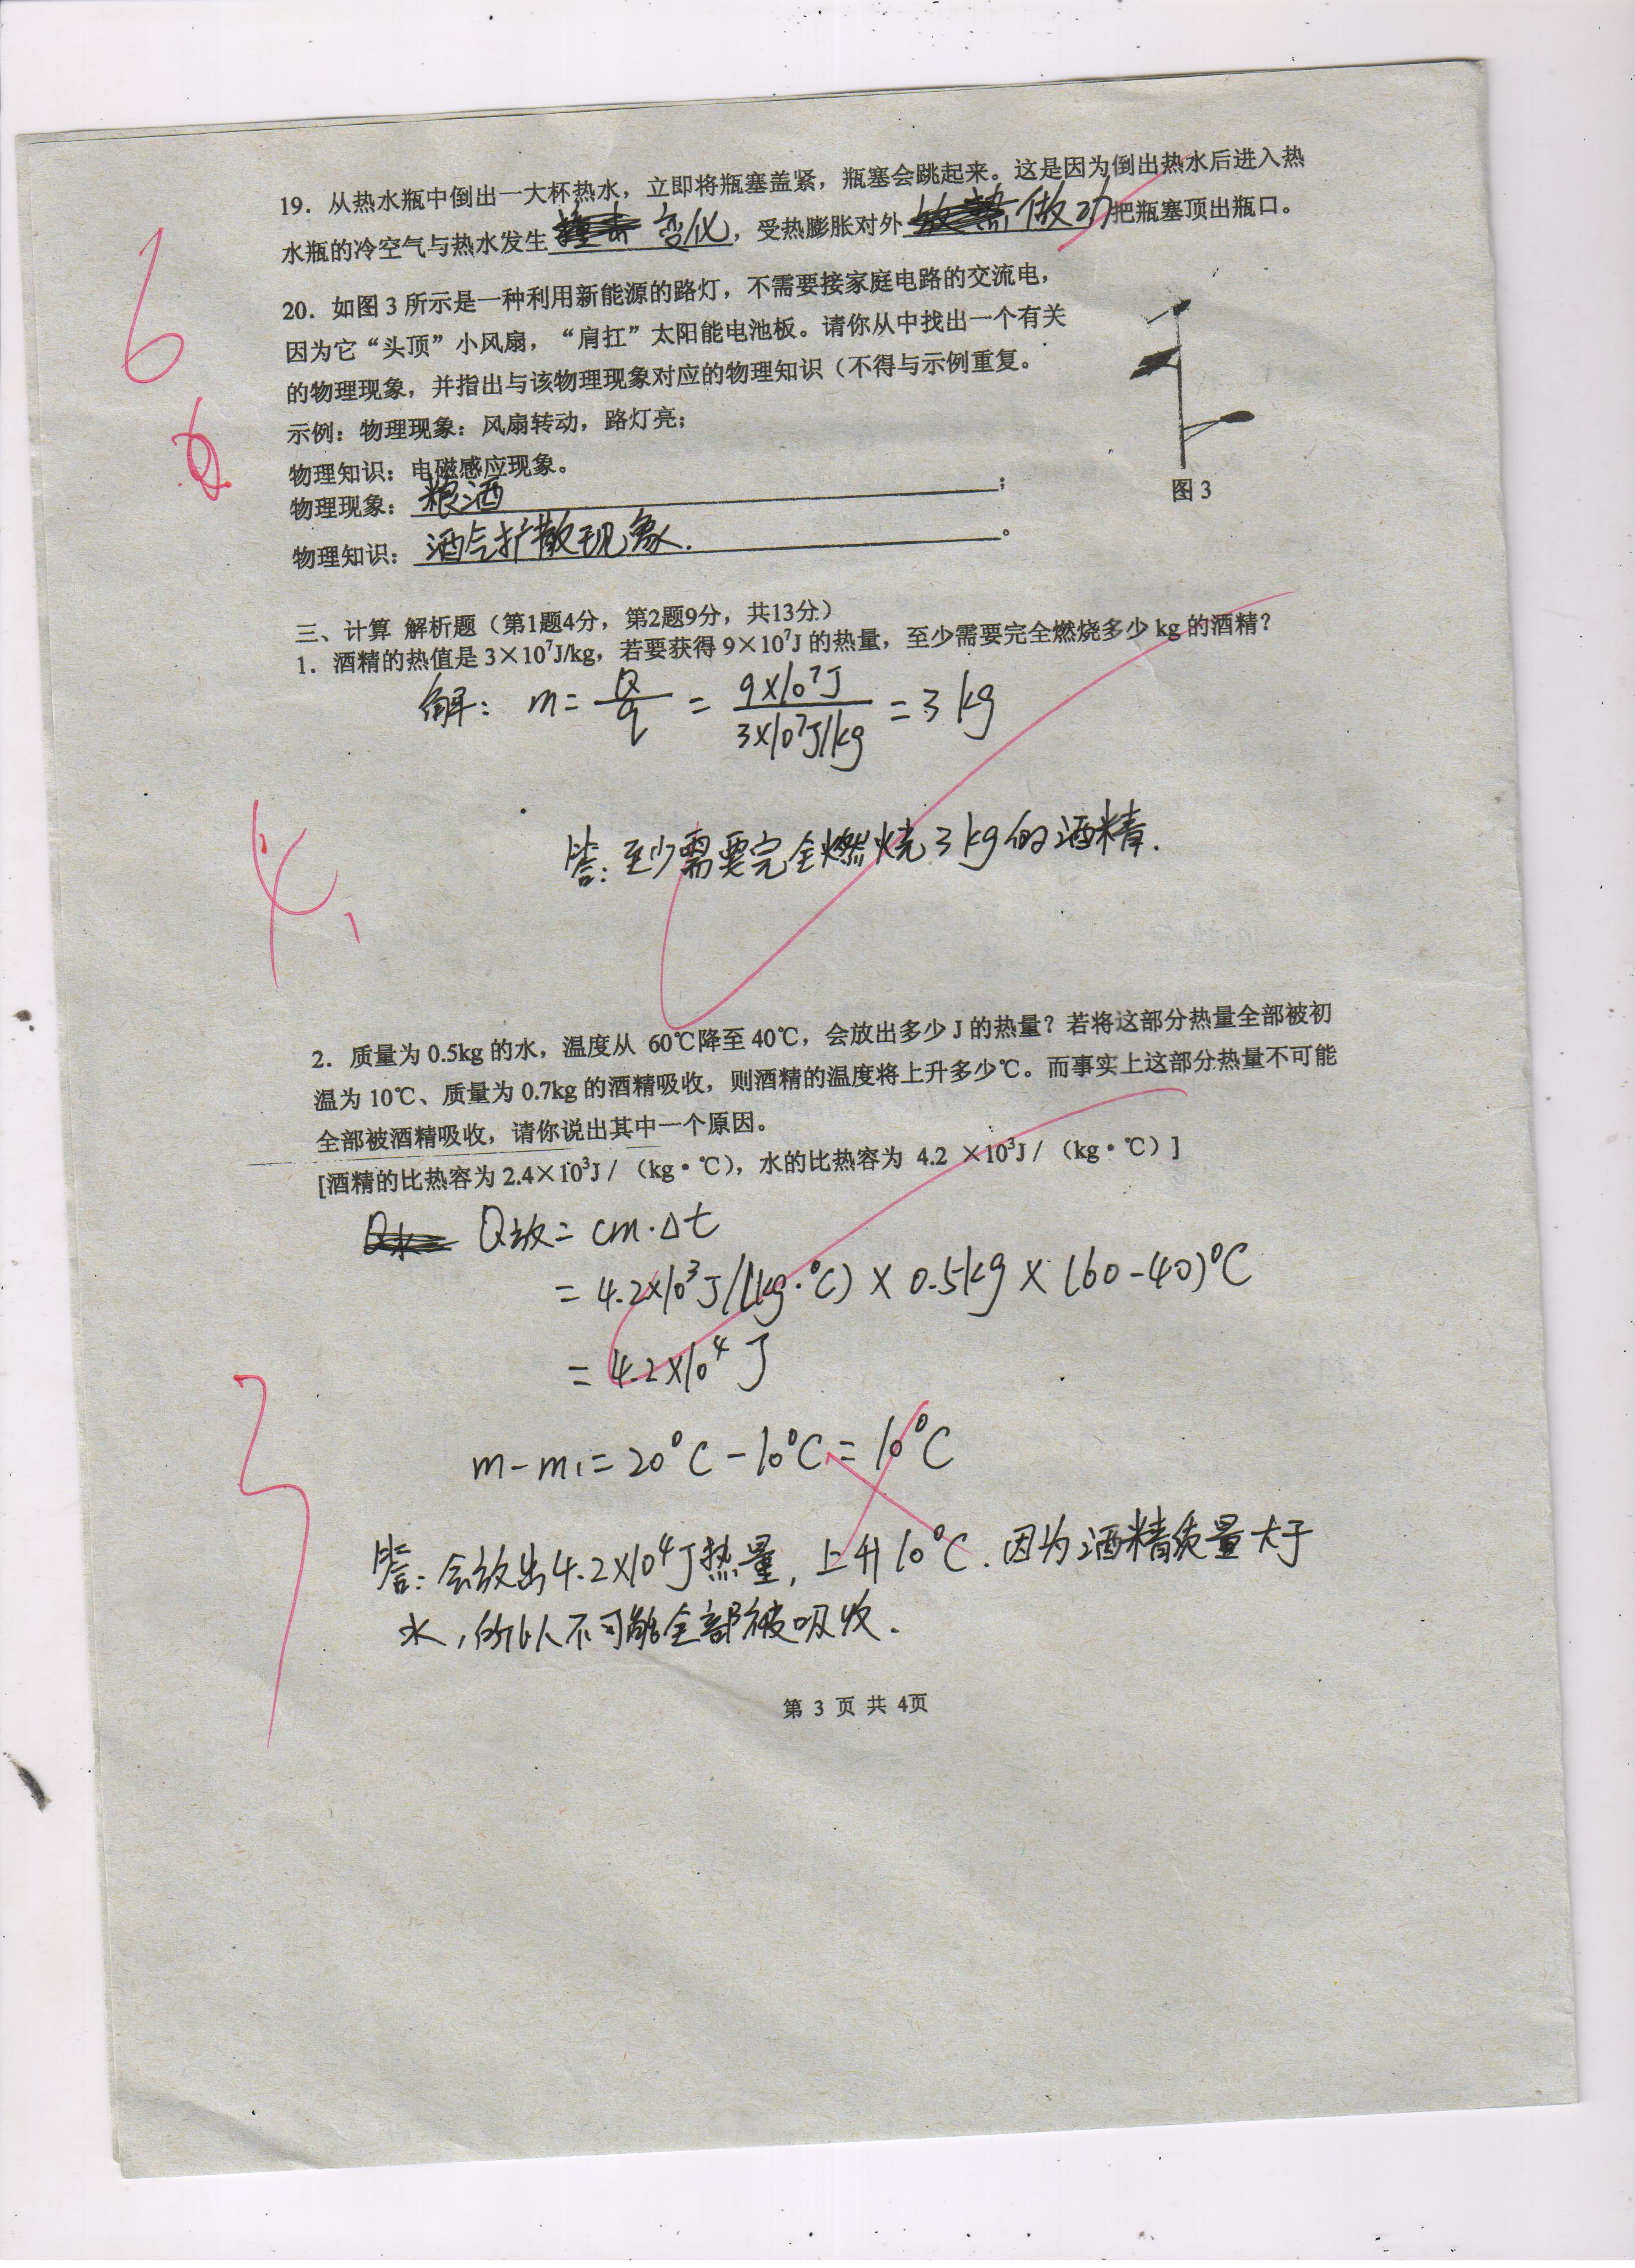 19．从热水瓶中倒出一大杯热水，立即将瓶塞盖紧，瓶塞会跳起来。这是因为倒出热水后进入热
水瓶的冷空气与热水发生 变化，受热膨胀对外 做功把瓶塞顶出瓶口。
20．如图 3 所示是一种利用新能源的路灯，不需要接家庭电路的交流电，
因为它“头顶”小风扇，“肩扛”太阳能电池板。请你从中找出一个有关
的物理现象，并指出与该物理现象对应的物理知识（不得与示例重复。
示例：物理现象：风扇转动，路灯亮；
物理知识：电磁感应现象。
物理现象：粮酒；
物理知识：酒气扩散现象.。
图 3
6
三、计算 解析题（第1题4分，第2题9分，共13分）
1．酒精的热值是 3×10⁷J/kg，若要获得 9×10⁷J 的热量，至少需要完全燃烧多少 kg 的酒精？
解：m = Q/q = 9×10⁷J / 3×10⁷J/kg = 3 kg
答：至少需要完全燃烧3kg的酒精.
4
2．质量为 0.5kg 的水，温度从 60℃降至 40℃，会放出多少 J 的热量？若将这部分热量全部被初
温为 10℃、质量为 0.7kg 的酒精吸收，则酒精的温度将上升多少℃。而事实上这部分热量不可能
全部被酒精吸收，请你说出其中一个原因。
[酒精的比热容为 2.4×10³J /（kg·℃），水的比热容为 4.2 ×10³J /（kg·℃）]
Q放 = cm·Δt
= 4.2×10³J/(kg·℃) × 0.5kg × (60-40)℃
= 4.2×10⁴ J
m-m₁=20℃-10℃=10℃
3
答：会放出4.2×10⁴J热量，上升10℃.因为酒精质量大于
水，所以不可能全部被吸收.
第 3 页 共 4页